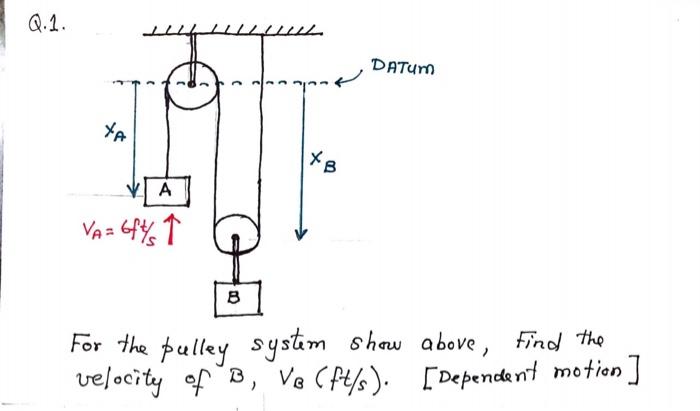 Q.1.
DATUM
XA
XB
A
VA = 6ft/s ↑
B
For the pulley system show above, Find the
velocity of B, VB (ft/s). [Dependent motion]